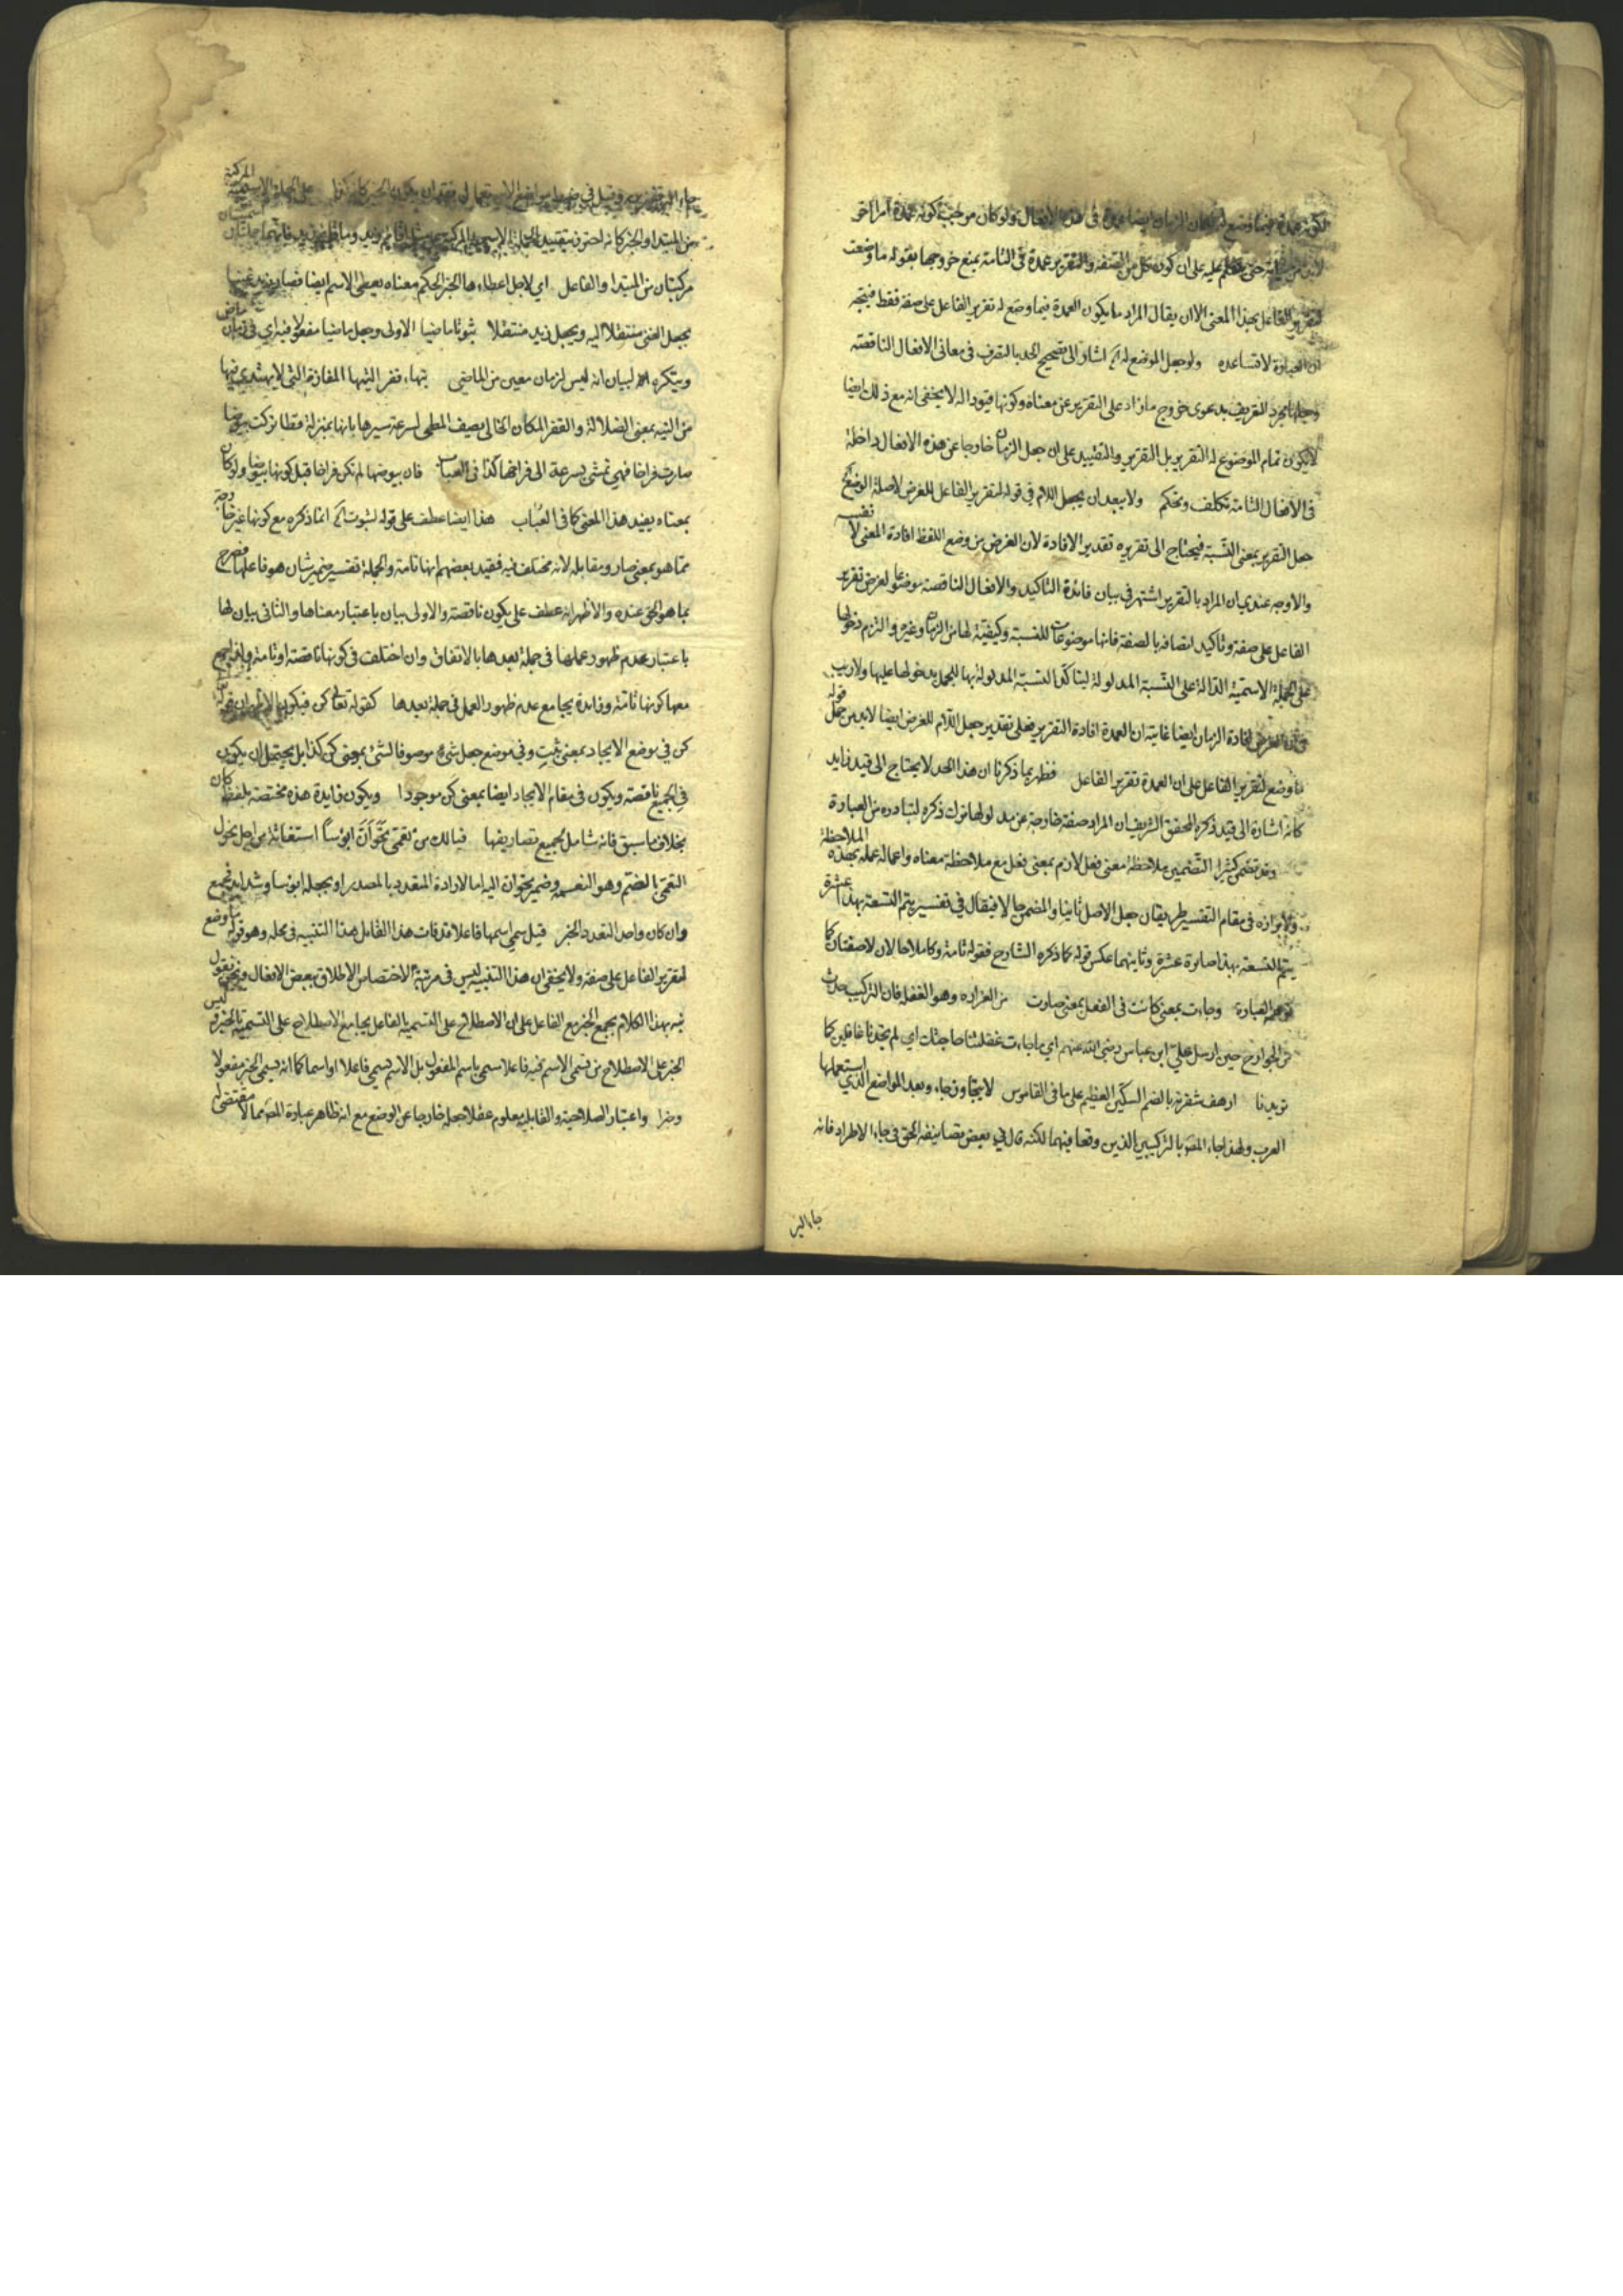 لكونه عمدة فيما وضع له لكان الزمان ايضا عمدة في هذه الافعال ولو كان موجب كونه عمدة امرا اخر
لابد من حتى عليه على ان كون كل من الصفة والتقرير عمدة في التامة يمنع خروجها بقوله ما وضعت
لتقرير الفاعل بهذا المعنى الا ان يقال المراد ما يكون العمدة فيما وضع له تقرير الفاعل على صفة فقط فيتجه
ان العبارة لا تساعده ولو جعل الموضع له الخ اشار الى تصحيح الحد بالتصرف في معاني الافعال الناقصة
وجعلها بمجرد التعريف بدعوى خروج ما زاد على التقرير عن معناه وكونها قيودا له لا يخفى انه مع ذلك ايضا
لا يكون تمام الموضوع له التقرير بل التقرير والتقييد على ان جعل الزمان خارجا عن هذه الافعال داخلة
في الافعال التامة تكلف وتحكم ولا يبعد ان يجعل اللام في قوله لتقرير الفاعل للغرض لا صلة الوضع
جعل التقرير بمعنى النسبة فيحتاج الى تقريره تقدير الافادة لان الغرض من وضع اللفظ افادة المعنى لا نفسه
والاوجه عندي ان المراد بالتقرير اشتهر في بيان فائدة التاكيد والافعال الناقصة موضوعة لغرض تقرير
الفاعل على صفة وتاكيد اتصافه بالصفة فانها موضوعات للنسبة وكيفية لها من الزمان وغيره والتزم دخولها
على الجملة الاسمية الدالة على النسبة المدلولة ليتاكد النسبة المدلولة بها للجمل بدخولها عليها ولا ريب
في ان الغرض افادة الزمان ايضا غايته ان العمدة افادة التقرير فعلى تقدير جعل اللام للغرض ايضا لابد من حمل قوله
ما وضع لتقرير الفاعل على ان العمدة تقرير الفاعل فظهر بما ذكرنا ان هذا الحد لا يحتاج الى قيد زايد
كانه اشارة الى قيد ذكره المحقق الشريف ان المراد صفة خارجة عن مدلولها ترك ذكره لتبادره من العبارة
وقد تضمن كثيرا التضمين ملاحظة معنى فعل لازم بمعنى فعل مع ملاحظة معناه واعماله عمله بهذه الملاحظة
ولابرازه في مقام التفسير طريقان جعل الاصل ثانيا والمضمن حالا فيقال في تفسير يتم التسعة بهذا عشرة
يتم التسعة بهذا صايرة عشرة وثانيهما عكس قوله كما ذكره الشارح فقوله تامة وكاملا حالان لا صفتان كما
توهم العبارة وجاءت بمعنى كانت في الفعل بمعنى صارت من الغرارة وهو الغفلة فان التركيب حدث
من الجوارح حين ارسل علي ابن عباس رضي الله عنهم اي ما جاءت غفلتنا حاجتك اي لم يجدنا غافلين كما
تريدنا ارهف شفرته بالضم السكين العظيم على ما في القاموس لا يتجاوز جاء وبعد المواضع الذي استعملها
العرب ولهذا جاء المص بالتركيبين الذين وقعا فيهما لكنه قال في بعض تصانيفه الحق في جاء الاطراد فانه
جاء البر
جاء البر قفيزين وقيل في ضمها مواضع الاستعمال فقد ان يكون الخبر كما ذكرنا على الجملة الاسمية المركبة
من المبتدا والخبر كانه احترز بتقييد الجملة الاسمية بالمركبة عن مثل اقائم زيد وما قائم زيد فانهما جملتان اسميتان
مركبتان من المبتدا والفاعل اي لاجل اعطاءها الخبر الحكم معناه يعطي الاسم ايضا فصار زيد غنيا
يجعل الغنى منتقلا اليه ويجعل زيد منتقلا ثبوتا ماضيا الاولى وجعل ماضيا مفعولا فيه اي في زمان ماض
وينكره لبيان انه ليس لزمان معين من الماضي بتهاء قفر التيها المفازة التي لا يهتدي فيها
من التيه بمعنى الضلالة والقفر المكان الخالي يصف المطي لسرعة سيرها بانها بمنزلة قطا تركت بيوضا
صارت فراخا فهي تمشي بسرعة الى فراخها كذا في العباب فان بيوضها لم تكن فراخا قبل كونها بيوضا ولو كان
بمعناه يفيد هذا المعنى كما في العباب هذا ايضا عطف على قوله لثبوت الخ انما ذكره مع كونها غير خارجة
عما هو بمعنى صار ومقابله لانه مختلف فيه فعند بعضهم انها تامة والجملة تفسير ضمير شان هو فاعلها فصرح
بما هو الحق عنده والاظهر انه عطف على يكون ناقصة والاولى بيان باعتبار معناها والثاني بيان لها
باعتبار عدم ظهور عملها في جملة بعدها بالاتفاق وان اختلف في كونها ناقصة او تامة
معها كونها تامة وزائدة يجامع عدم ظهور العمل في جملة بعدها كقوله تعالى كن فيكون الاظهر ان قوله
كن في موضع الايجاد بمعنى ثبت وفي موضع جعل شيء موصوفا لشيء بمعنى كن كذا بل يحتمل ان يكون
في الجميع ناقصة ويكون في مقام الايجاد ايضا بمعنى كن موجودا ويكون زايدة هذه مختصة بلفظ كان
بخلاف ما سبق فانه شامل لجميع تصاريفها فيا لك من نعمى تحولن ابؤسا استغاثة من اجل تحول
النعمى بالضم وهو النعمة وضمير تحولن اليه اما لارادة المتعدد بالمصدر او بجعله ابؤسا وشدايد جمع
وان كان واحد التعدد الخبر قيل سمي اسمها فاعلا قد فات هذا القائل هذا التنبيه في محله وهو قوله ما وضع
لتقرير الفاعل على صفة ولا يخفى ان هذا التنبيه ليس في مرتبة لاختصاص الاطلاق ببعض الافعال ونحن نقول
نبه بهذا الكلام بجمع الخبر مع الفاعل على ان الاصطلاح على التسمية بالفاعل يجامع الاصطلاح على التسمية بالخبر وليس
الخبر على الاصطلاح من تسمى الاسم فيه فاعلا سمي باسم المفعول بل الاسم يسمى فاعلا او اسما كما انه يسمى الخبر مفعولا
وخبرا واعتبار الصلاحية والقابلية معلوم عقلا جعله خارجا عن الوضع مع انه ظاهر عبارة المص مما لا مقتضى له